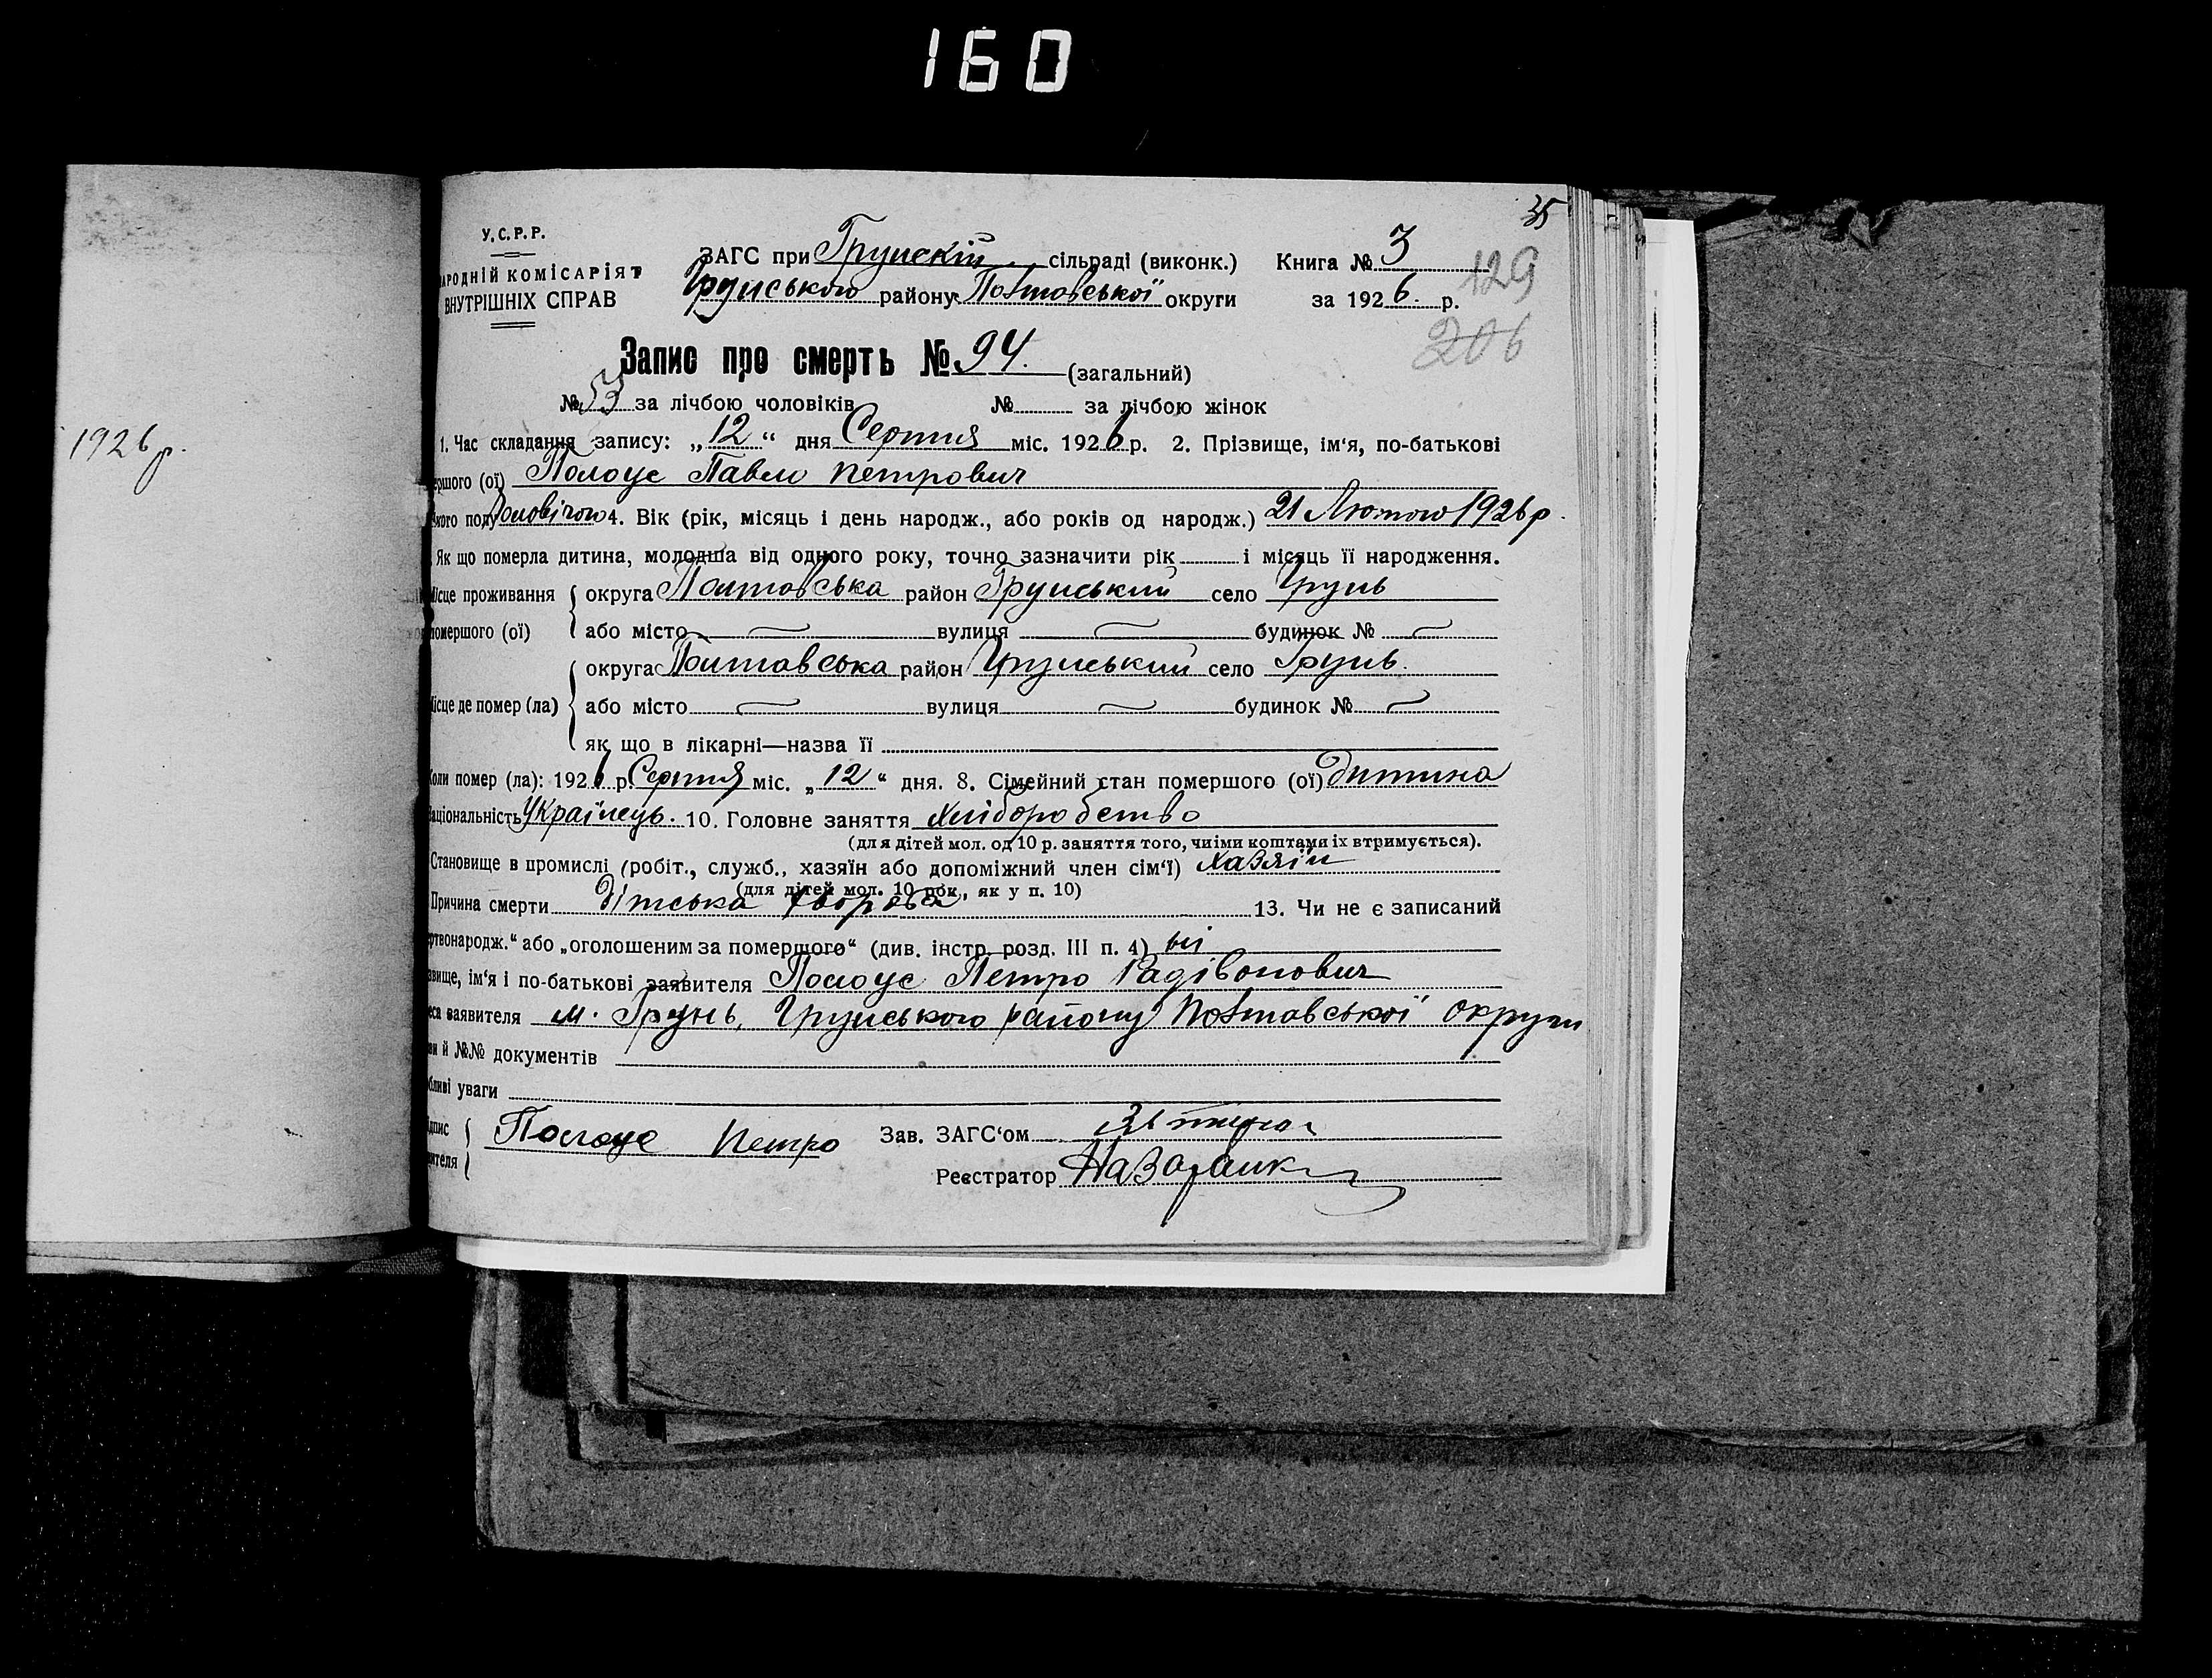 160
35
У.С.Р.Р.
НАРОДНІЙ КОМІСАРІЯТ
ВНУТРІШНІХ СПРАВ
ЗАГС при Грунскій сільраді (виконк.) Книга № 3
Грунського району Полтовської округи за 1926. р.
129
206
Запис про смерть № 94. (загальний)
№ 53 за лічбою чоловіків № за лічбою жінок
1926 р.
1. Час складання запису: „12“ дня Серпня міс. 1926 р. 2. Прізвище, ім‘я, по-батькові
ершого (ої) Полоус Павло Петрович
кого полу Чоловічого 4. Вік (рік, місяць і день народж., або років од народж.) 21 Лютого 1926 р.
Як що померла дитина, молодша від одного року, точно зазначити рік і місяць її народження.
Місце проживання округа Полтовська район Грунський село Грунь
помершого (ої) або місто — вулиця — будинок № —
округа Полтавська район Грунський село Грунь.
Місце де помер (ла) або місто — вулиця — будинок № —
як що в лікарні—назва її
Коли помер (ла): 1926 р. Серпня міс. „12“ дня. 8. Сімейний стан помершого (ої) дитина
Національність Українець. 10. Головне заняття хліборобство
(для дітей мол. од 10 р. заняття того, чиїми коштами їх втримується).
Становище в промислі (робіт., служб., хазяїн або допоміжний член сім‘ї) хазяїн
(для дітей мол. 10 рок., як у п. 10)
Причина смерти Дітська хвороба 13. Чи не є записаний
ртвонародж.“ або „оголошеним за помершого“ (див. інстр. розд. III п. 4) ні
звище, ім‘я і по-батькові заявителя Полоус Петро Радівонович
еса заявителя м. Грунь, Грунського району Полтавської округи
ви й №№ документів
бливі уваги
дпис Полоус Петро Зав. ЗАГС‘ом
вителя Реєстратор